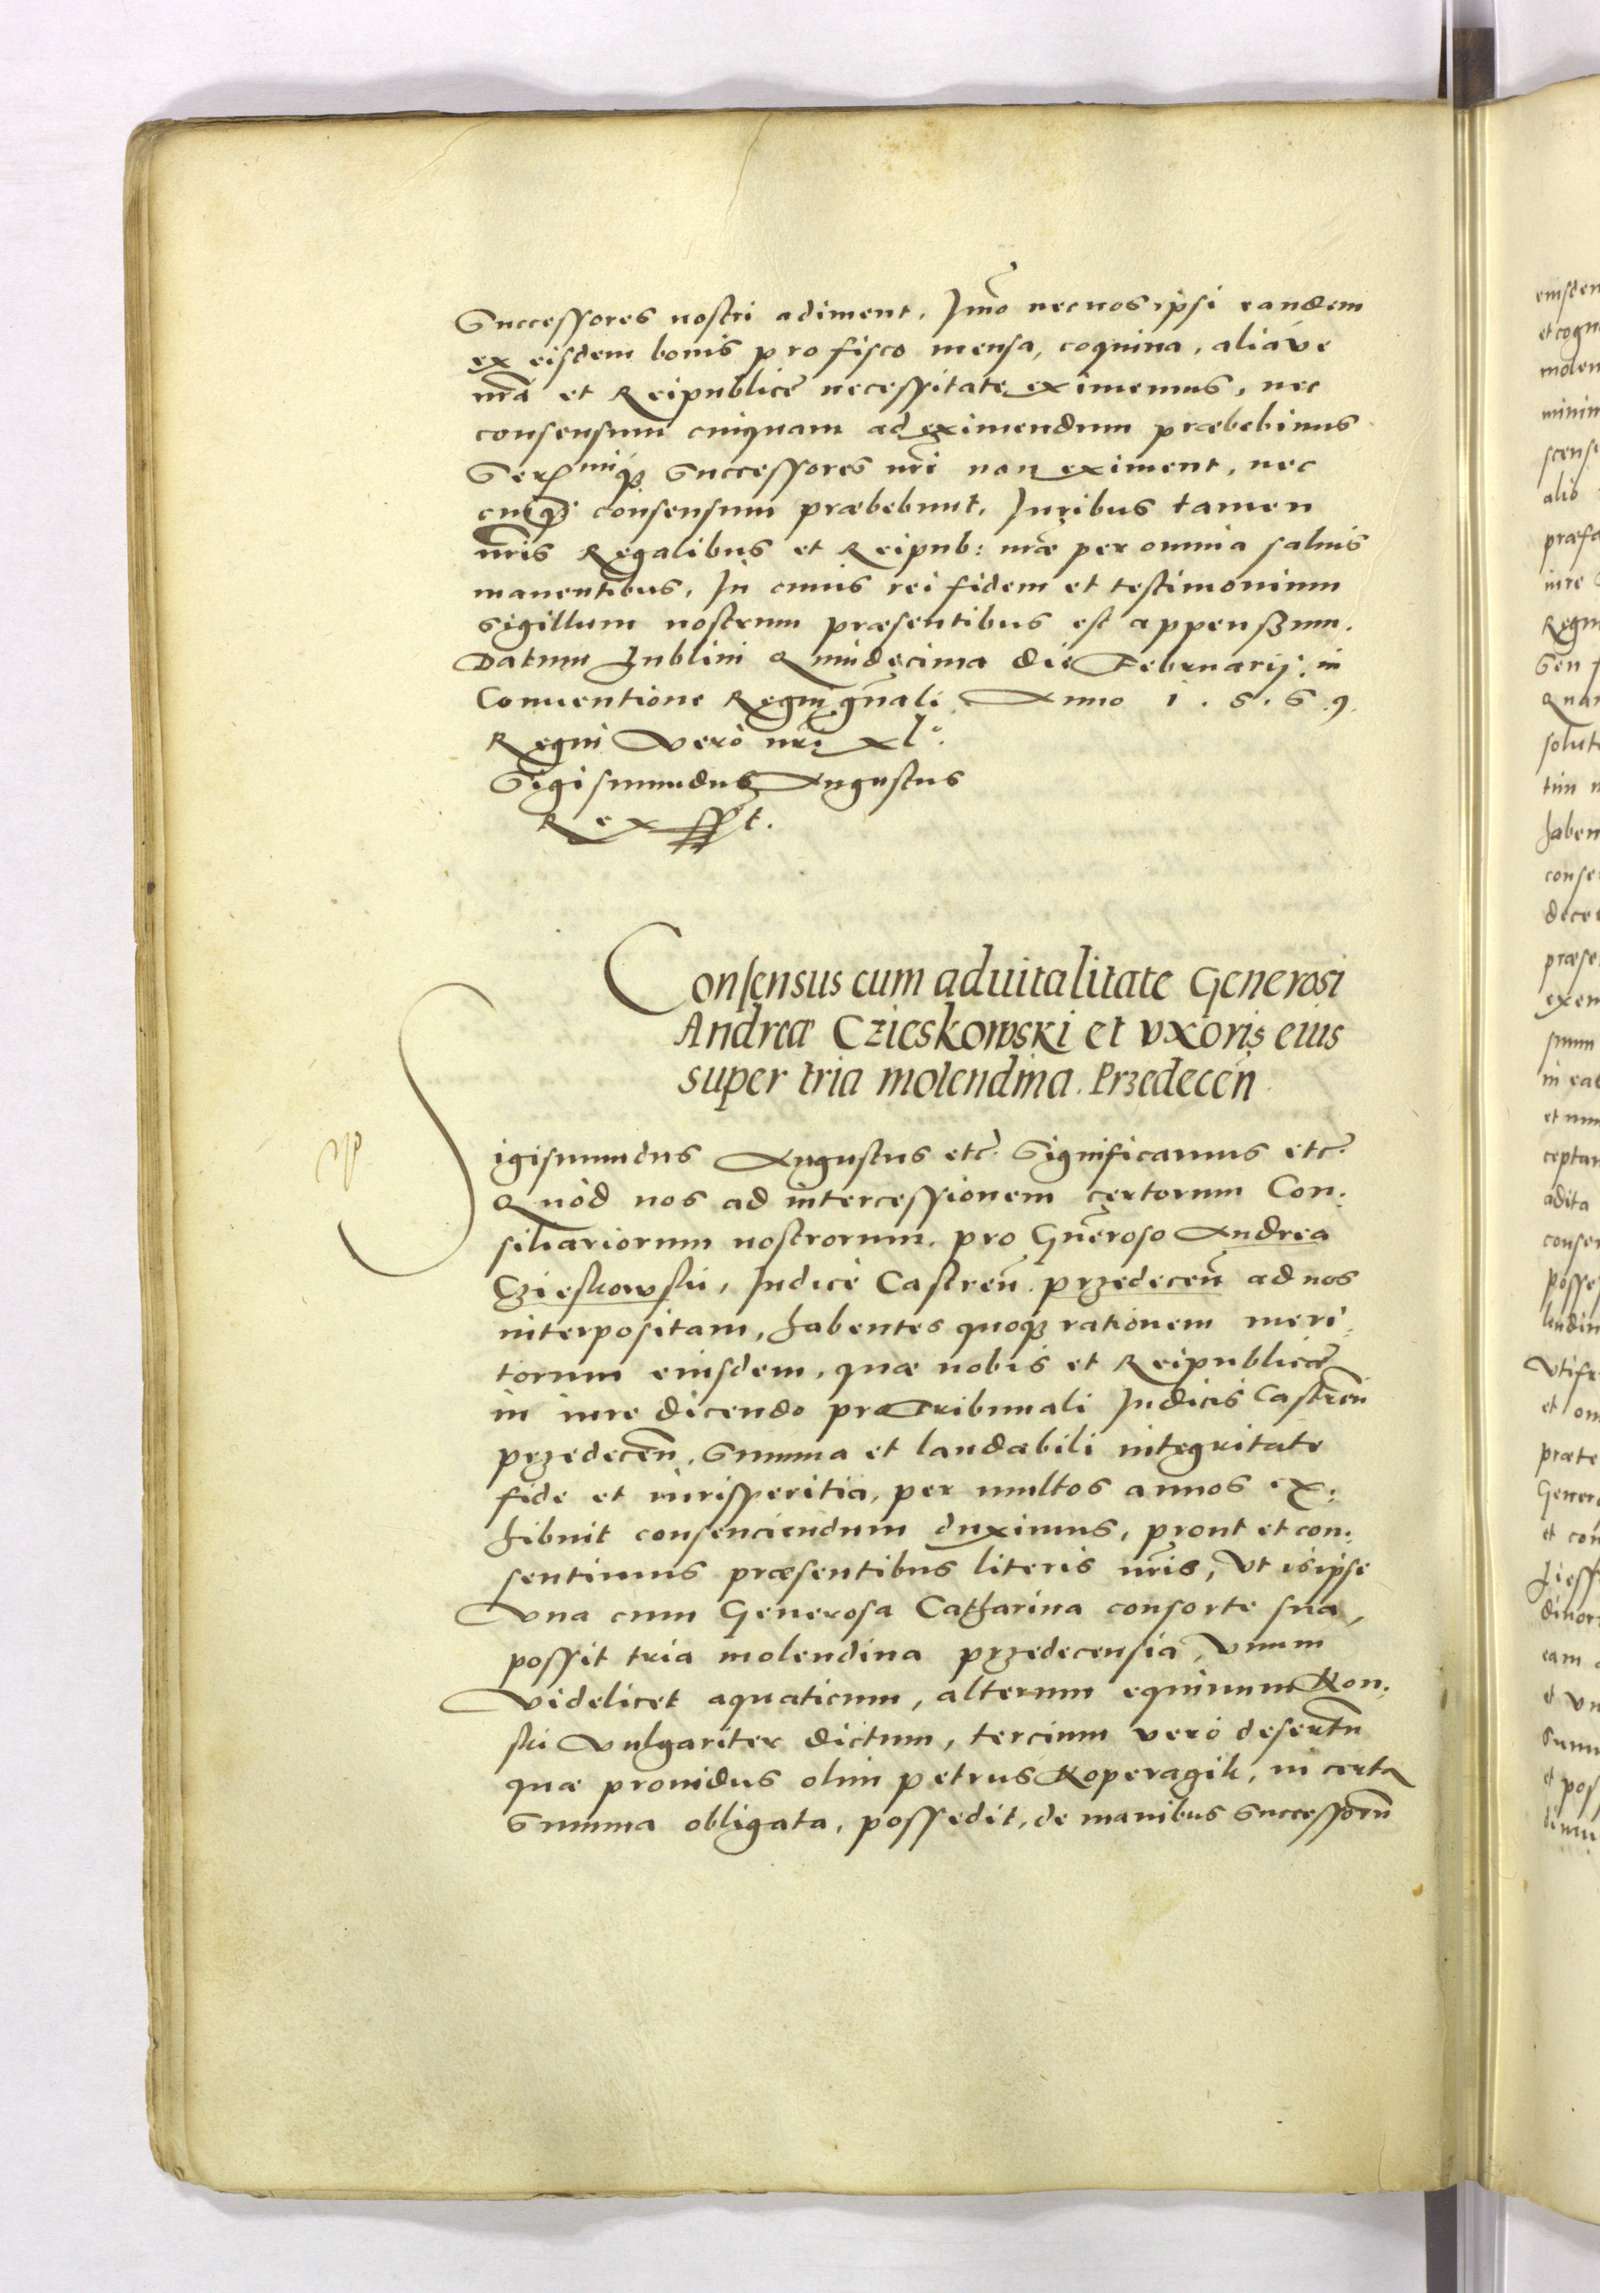 Successores nostri adiment. Imo nec nos ipsi eandem
ex eisdem bonis pro fisco mensa, coquina, aliáve
nrã et Reipublicę necessitate eximemus, nec
consensum cuiquam ad eximendum præbebimus
Sermiq₃ Successores nri non eximent, nec
cuiq₃ consensum præbebunt. Iuribus tamen
nris Regalibus et Reipub: nræ per omnia saluis
manentibus. In cuius rei fidem et testimonium
sigillum nostrum præsentibus est appensum.
Datum Lublini Quindecima die Februarij: in
Conuentione Regni gñali. Anno 1.5.6.9.
Regni vero nri xl°.
Sigismundus Augustus
Rex sst.
Consensus cum aduitalitate Generosi
Andreæ Czieskowski et vxoris eius
super tria molendina. Przedeceñ.
Sigismundus Augustus etc̃ Significamus etc̃
Quod nos ad intercessionem certorum Con:
siliariorum nostrorum. pro Gñeroso Andrea
Czieskowski, Iudice Castreñ. przedeceñ ad nos
interpositam, habentes quoq₃ rationem meri:
torum eiusdem, quæ nobis et Reipublicæ
in iure dicendo præ Tribunali Iudicis Castreñ
przedeceñ. Summa et laudabili integritate
fide et iurisperitia, per multos annos ex:
hibuit consenciendum duximus, prout et con:
sentimus præsentibus literis nris, Vt is ipse
Vna cum Generosa Catharina consorte sua,
possit tria molendina przedecensia, Vnum
Videlicet aquaticum, alterum equinum Kon:
ski vulgariter dictum, tercium vero desertũ
quæ prouidus olim petrus Koperagik, in certa
Summa obligata, possedit, de manibus Successorũ